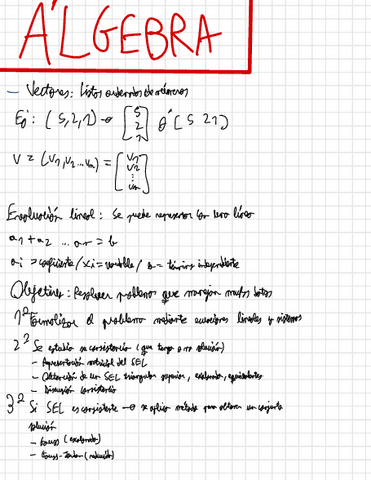 ÁLGEBRA
- Vectores: Listas ordenadas de números
Ej: (5,2,1) → [5 2 1] o [5 2 1]
V = (V1, V2 ... Vn) = [V1 V2 ⋮ Vn]
Ecuación lineal: Se puede representar con una línea
a1 + a2 ... an = b
ai → coeficiente / xi = variable / b = término independiente
Objetivo: Resolver problemas que manejan muchos datos
1º Formalizar el problema mediante ecuaciones lineales y sistemas
2º Se estudia su consistencia (que tenga o no solución)
- Representación matricial del SEL
- Obtención de un SEL triangular superior, escalonado, equivalentes
- Discusión consistencia
3º Si SEL es consistente → se aplica método para obtener un conjunto
solución
- Gauss (escalonado)
- Gauss-Jordan (reducción)